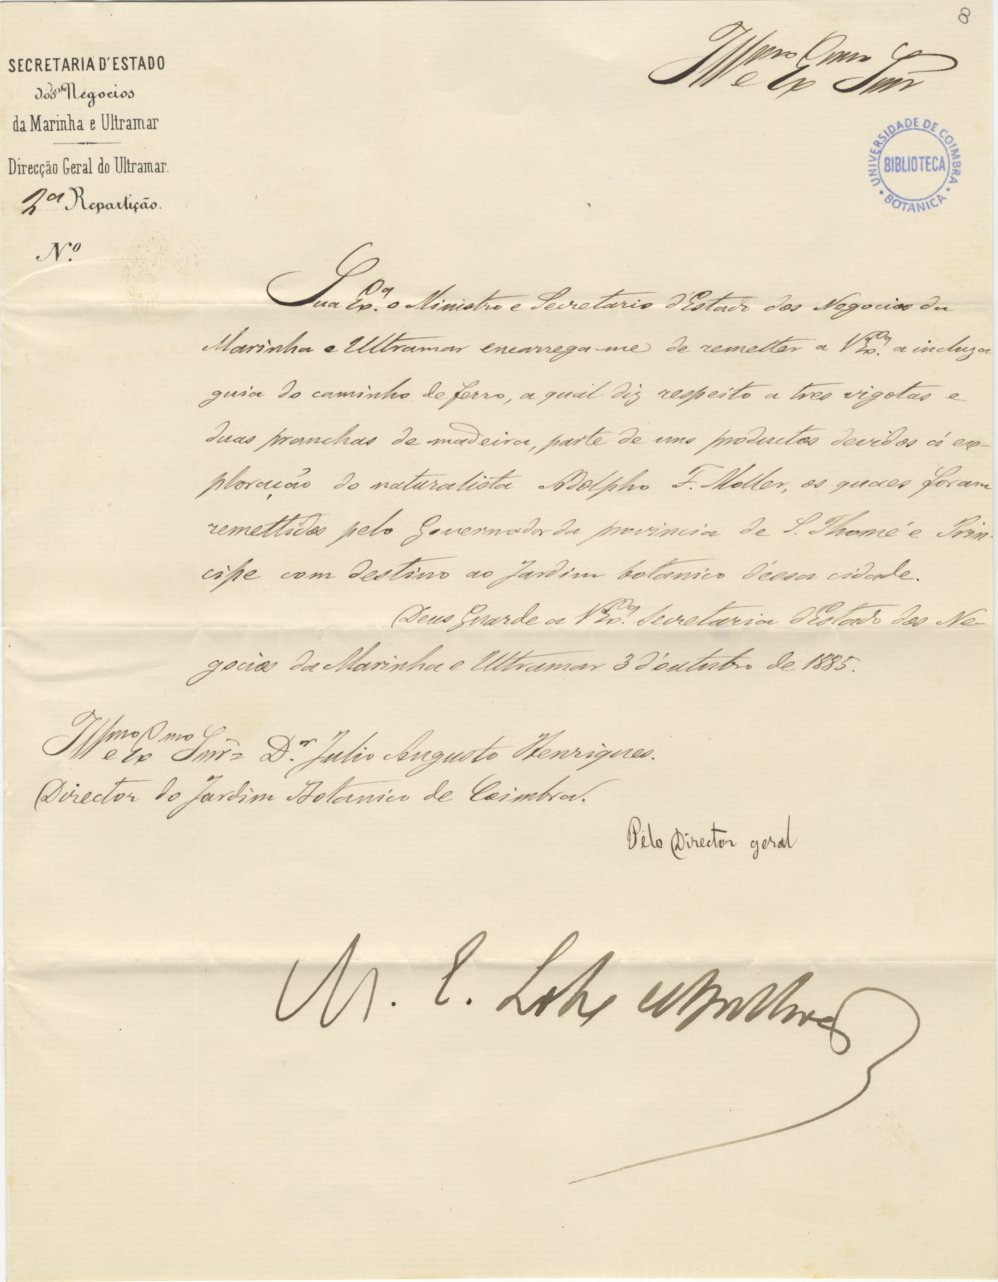 8
Ill.mo e Ex.mo Snr
SECRETARIA D'ESTADO
dos Negocios
da Marinha e Ultramar
Direcção Geral do Ultramar.
2.a Repartição.
N.º
UNIVERSIDADE DE COIMBRA
BIBLIOTECA
BOTANICA
Sua Ex.a o Ministro e Secretario d'Estado dos Negocios da
Marinha e Ultramar encarrega-me de remetter a V.Ex.a a incluza
guia do caminho de ferro, a qual diz respeito a tres vigotas e
duas pranchas de madeira, parte de uns productos devidos á ex-
ploração do naturalista Adolpho F. Moller, os quaes foram
remettidos pelo Governador da provincia de S. Thomé e Prin-
cipe com destino ao Jardim botanico d'essa cidade.
Deus Guarde a V.Ex.a Secretaria d'Estado dos Ne-
gocios da Marinha e Ultramar 3 d'outubro de 1885.
Ill.mo e Ex.mo Snr. D.r Julio Augusto Henriques.
Director do Jardim Botanico de Coimbra.
Pelo Director geral
M. E. Lobo